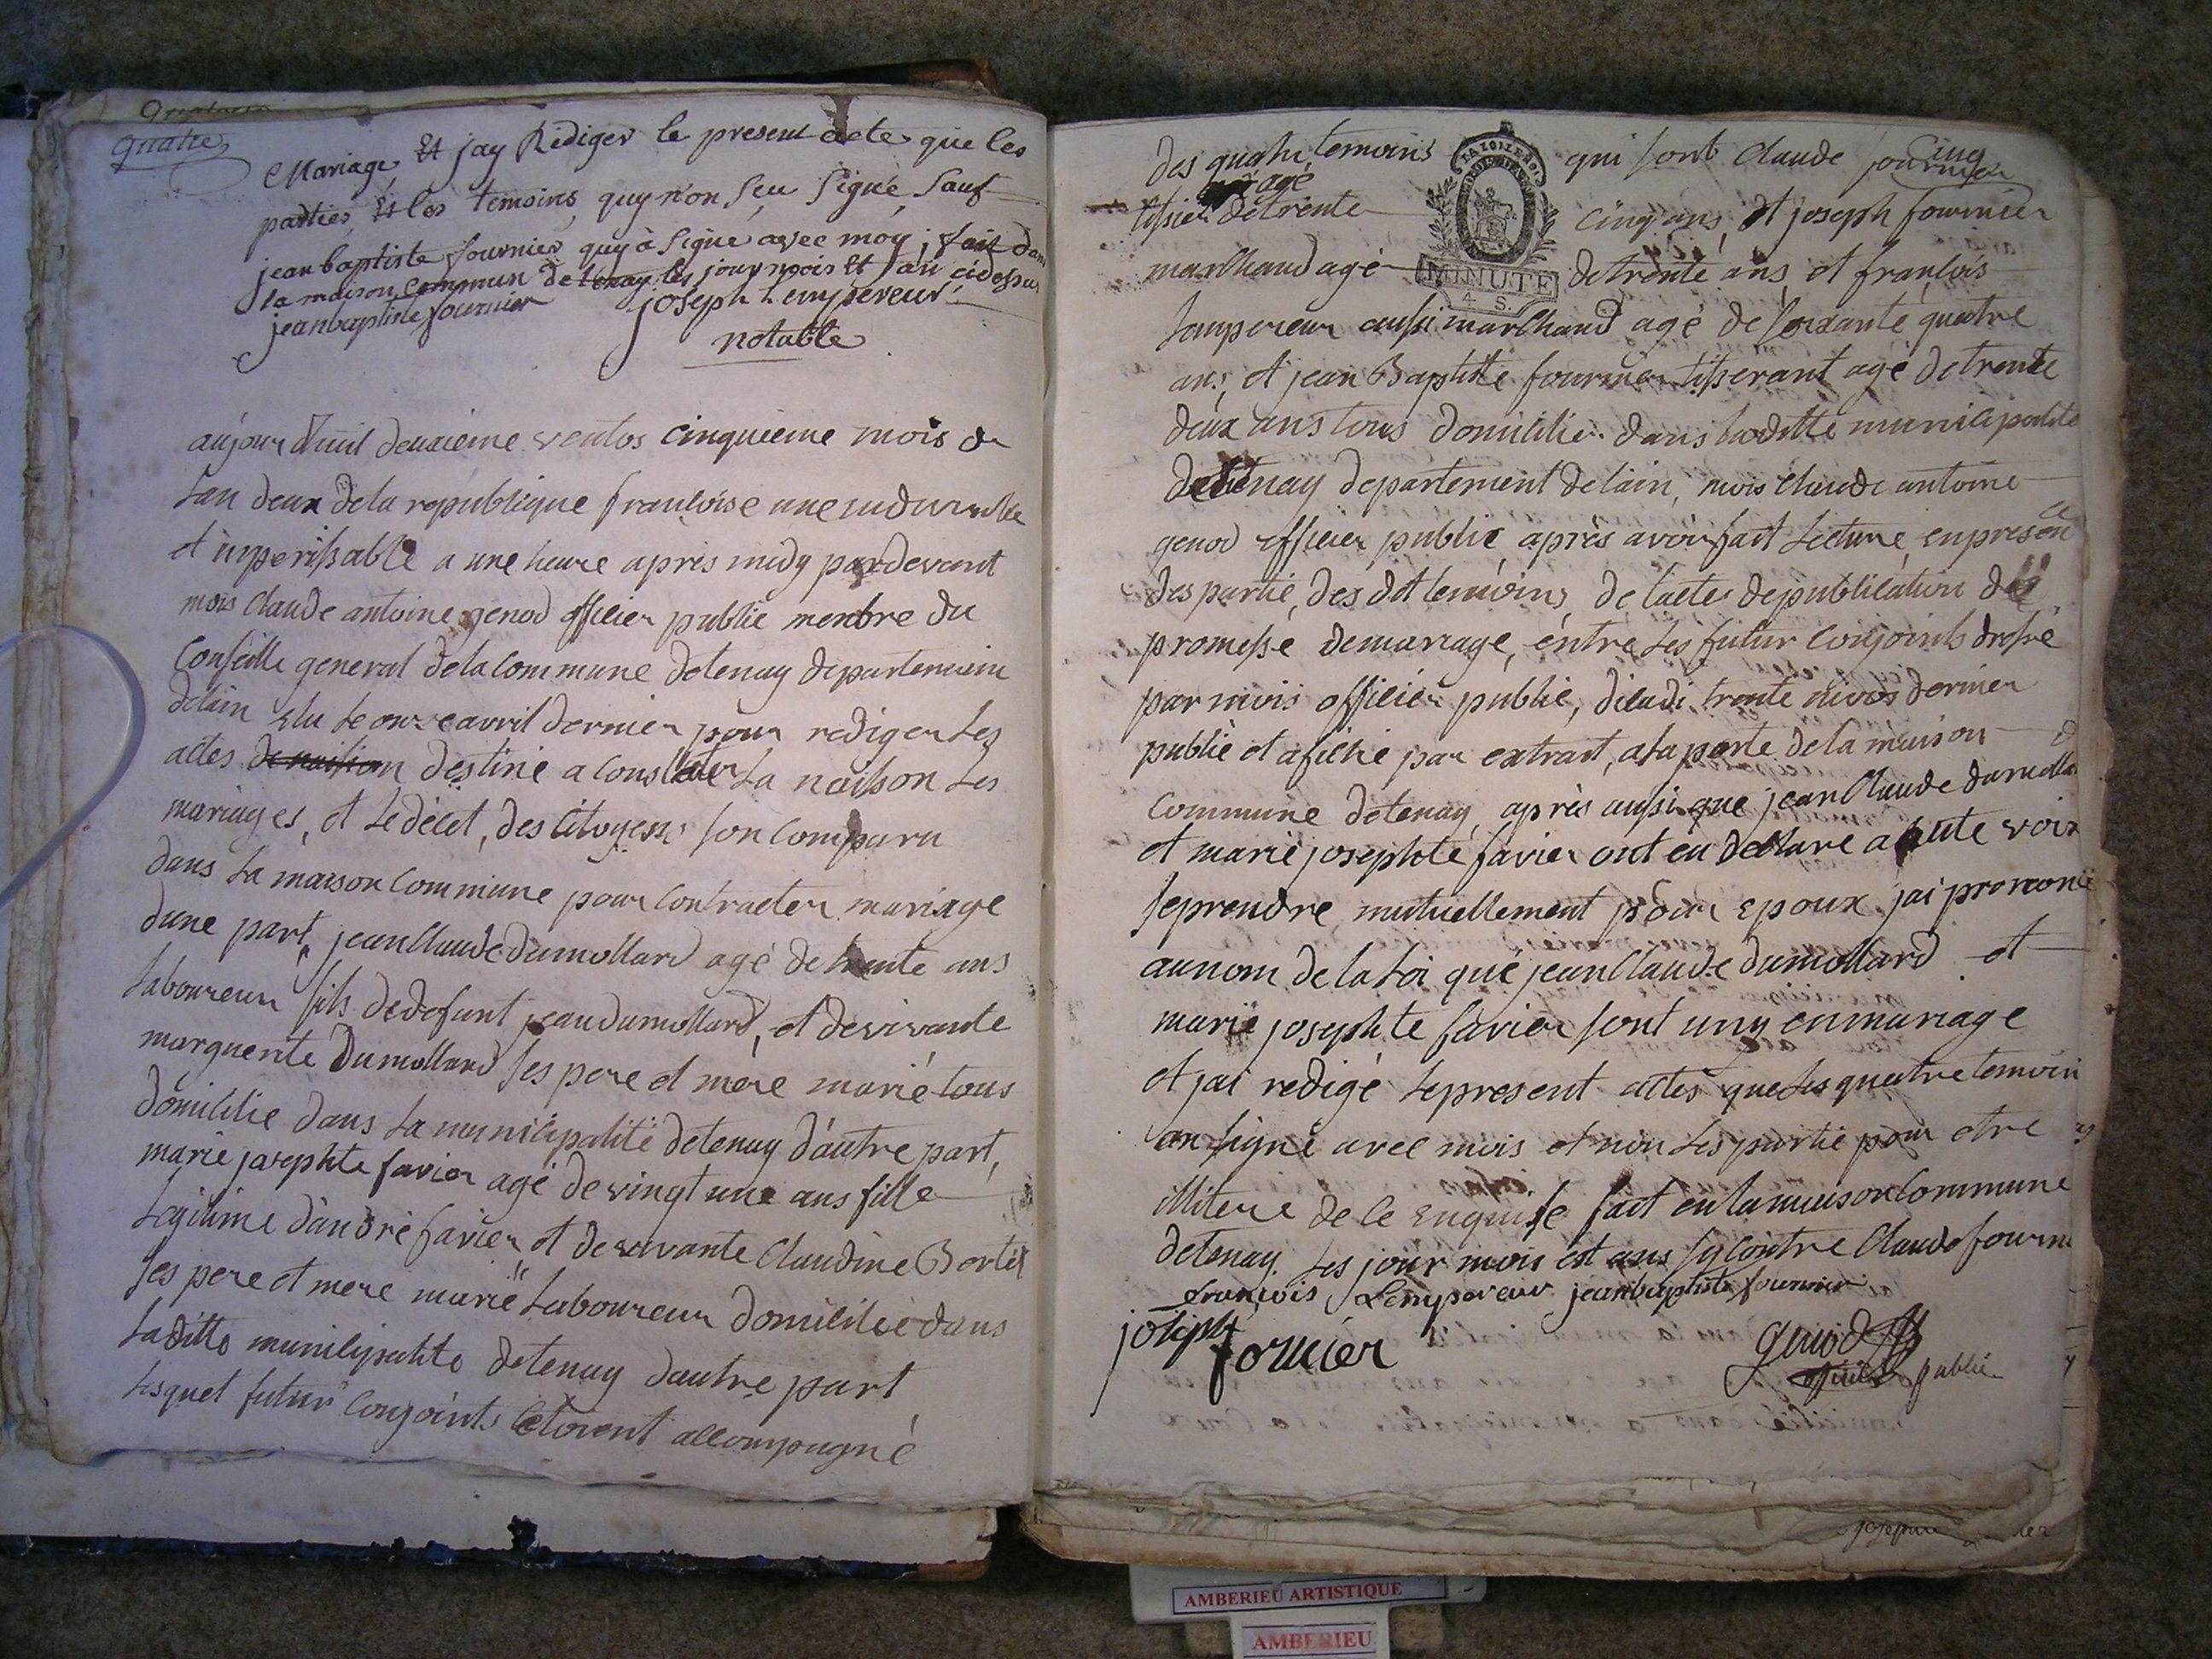 quatre
Mariage Et jay Rediger le present acte que les
parties Et les temoins quy n'on Seu Signé Sauf
jean baptiste fournier quy à Signe avec moy; fait dans
la maison commun de tenay les jour mois Et l'an cidessus
jeanbaptiste fournier joseph Lempereur
notable
aujourdhuil deuxieme ventos cinquieme mois de
Lan deux dela republique francoise une
et imperissable a une heure apres midy pardevant
mois claude antoine genod officier public menbre du
Conseille general delacommune detenay
delain elu Le onze avril dernier pour rediger Les
actes destiné a constater La naisson Les
mariages, et Le décet, des Citoyens son comparu
dans La maison commune pour contracter mariage
dune part, jean Claude dumollard agé de trente ans
Laboureur fils dedefunt jean dumollard, et devivante
marguerite Dumollard Ses pere et mere marié tous
domicilie dans La municipalité detenay d'autre part,
marie josephte favier agé de vingt une ans fille
Legitime d'andré favier et de vivante Claudine Bertet
Ses pere et mere marié Laboureur domicilié dans
Laditte municipalité detenay dautre part
Lesquel futur conjoints étoient accompagné
des quatre temoins qui sont Claude fournier
cinq
agé
tissier detrente cinq ans, et joseph fournier
marchand agé detrente ans, et francois
Lempereur aussi marchand agé de soixante quatre
ans, et jean Baptiste fournier tisserant agé detrente
deux ans tous domicilie dans laditte municipalité
de tenay departement delain, mois claude antoine
genod officier public après avoir fait Lecture, enpresence
des partie, des dit temoins, de lacte depublication de
promesse demariage, entre Les futur conjoints dressé
par mois officier public, dicadi trente nivos dernier
publié et afiché par extrait, ala porte dela maison
commune detenay, après aussi que jean Claude dumollard
et marie josephte favier ont eu declare a hute voix
Seprendre mutuellement pour epoux jai prononcé
aunom de la Loi que jean Claude dumollard et
marie josephte favier sont uny enmariage
et jai redigé Lepresent actes que Les quatre temoin
on signé avec mois et non Les partie pour etre
illitere de ce enquise fait en lamaison commune
detenay. Les jour mois et ans sycontre Claude fournier
francois Lempereur jeanbaptiste fournier
joseph fournier
genod officier public
LA LOI LE ROI
MINUTE
4 S.
AMBERIEU ARTISTIQUE
AMBERIEU